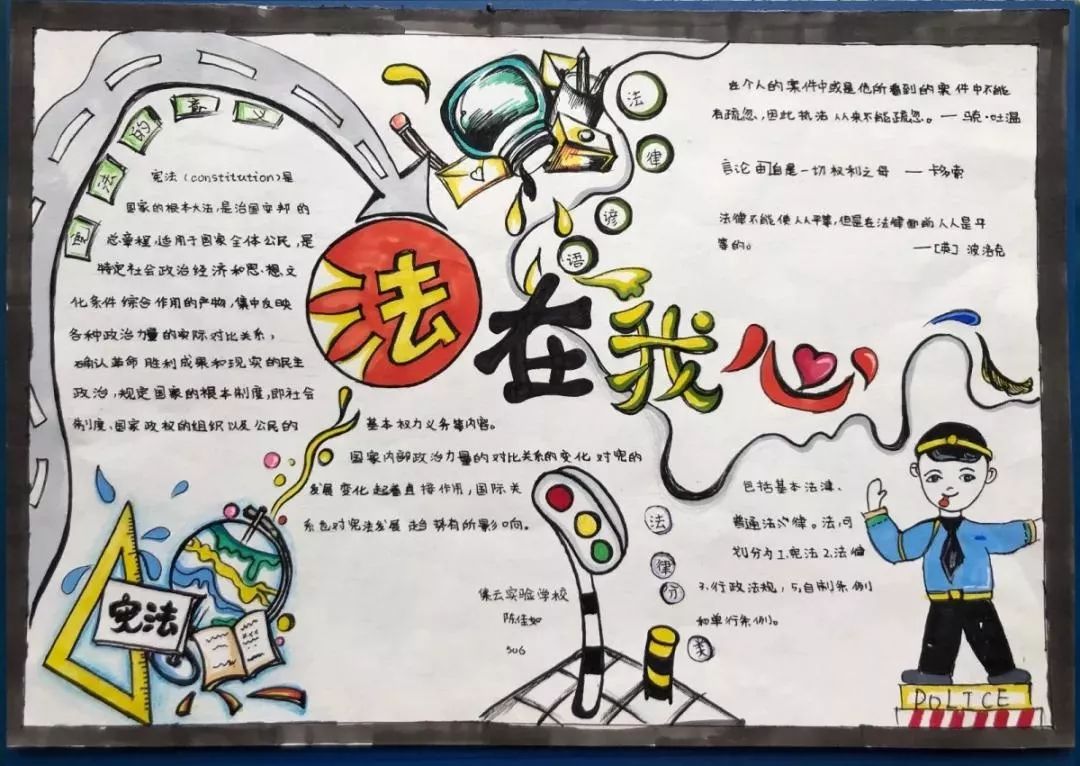 法在我心
宪法的意义
宪法（constitution）是
国家的根本大法，是治国安邦的
总章程，适用于国家全体公民，是
特定社会政治经济和思想文
化条件综合作用的产物，集中反映
各种政治力量的实际对比关系，
确认革命胜利成果和现实的民主
政治，规定国家的根本制度，即社会
制度、国家政权的组织以及公民的
基本权力义务等内容。
国家内部政治力量的对比关系的变化对宪的
发展变化起着直接作用，国际关
系也对宪法发展趋势有所影响。
法律谚语
在个人的案件中或是他所看到的案件中不能
有疏忽，因此执法人从来不能疏忽。—马克·吐温
言论自由是一切权利之母 —卡多索
法律不能使人人平等，但是在法律面前人人是平
等的。 —[英]波洛克
法律分类
包括基本法律、
普通法律。法，可
划分为1.宪法2.法律
3.行政法规，5.自制条例
和单行条例。
集云实验学校
陈佳如
506
宪法
POLICE